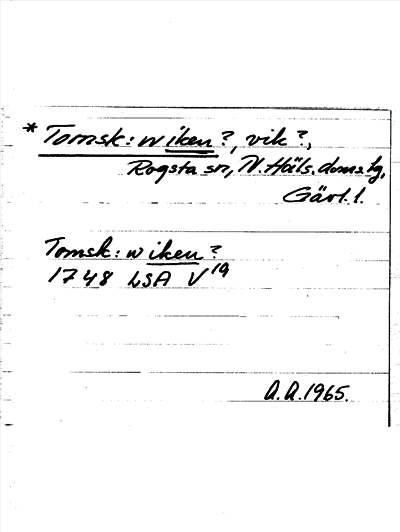 * Tomsk: wiken?, vik?,
Rogsta sn, N. Häls. doms lg,
Gävl. l.
Tomsk: wiken?
1748 LSA V 19
A.A. 1965.